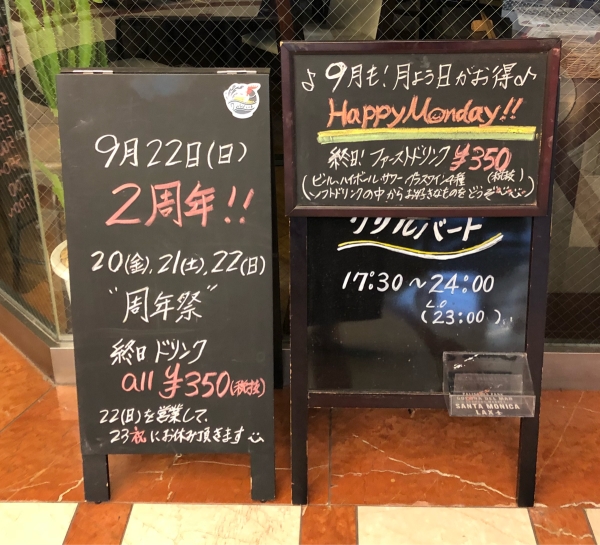 9月22日(日)
2周年!!
20(金),21(土),22(日)
"周年祭"
終日ドリンク
all ¥350(税抜)
22(日)を営業して、
23祝にお休み頂きます
♪9月も!月よう日がお得♪
HappyMonday!!
終日!ファーストドリンク¥350
(ビール、ハイボール、サワー、グラスワイン4種 (税抜)
ソフトドリンクの中からお好きなものをどうぞ)
リリルバート
17:30~24:00
L.O
(23:00)
SANTA MONICA
LAX